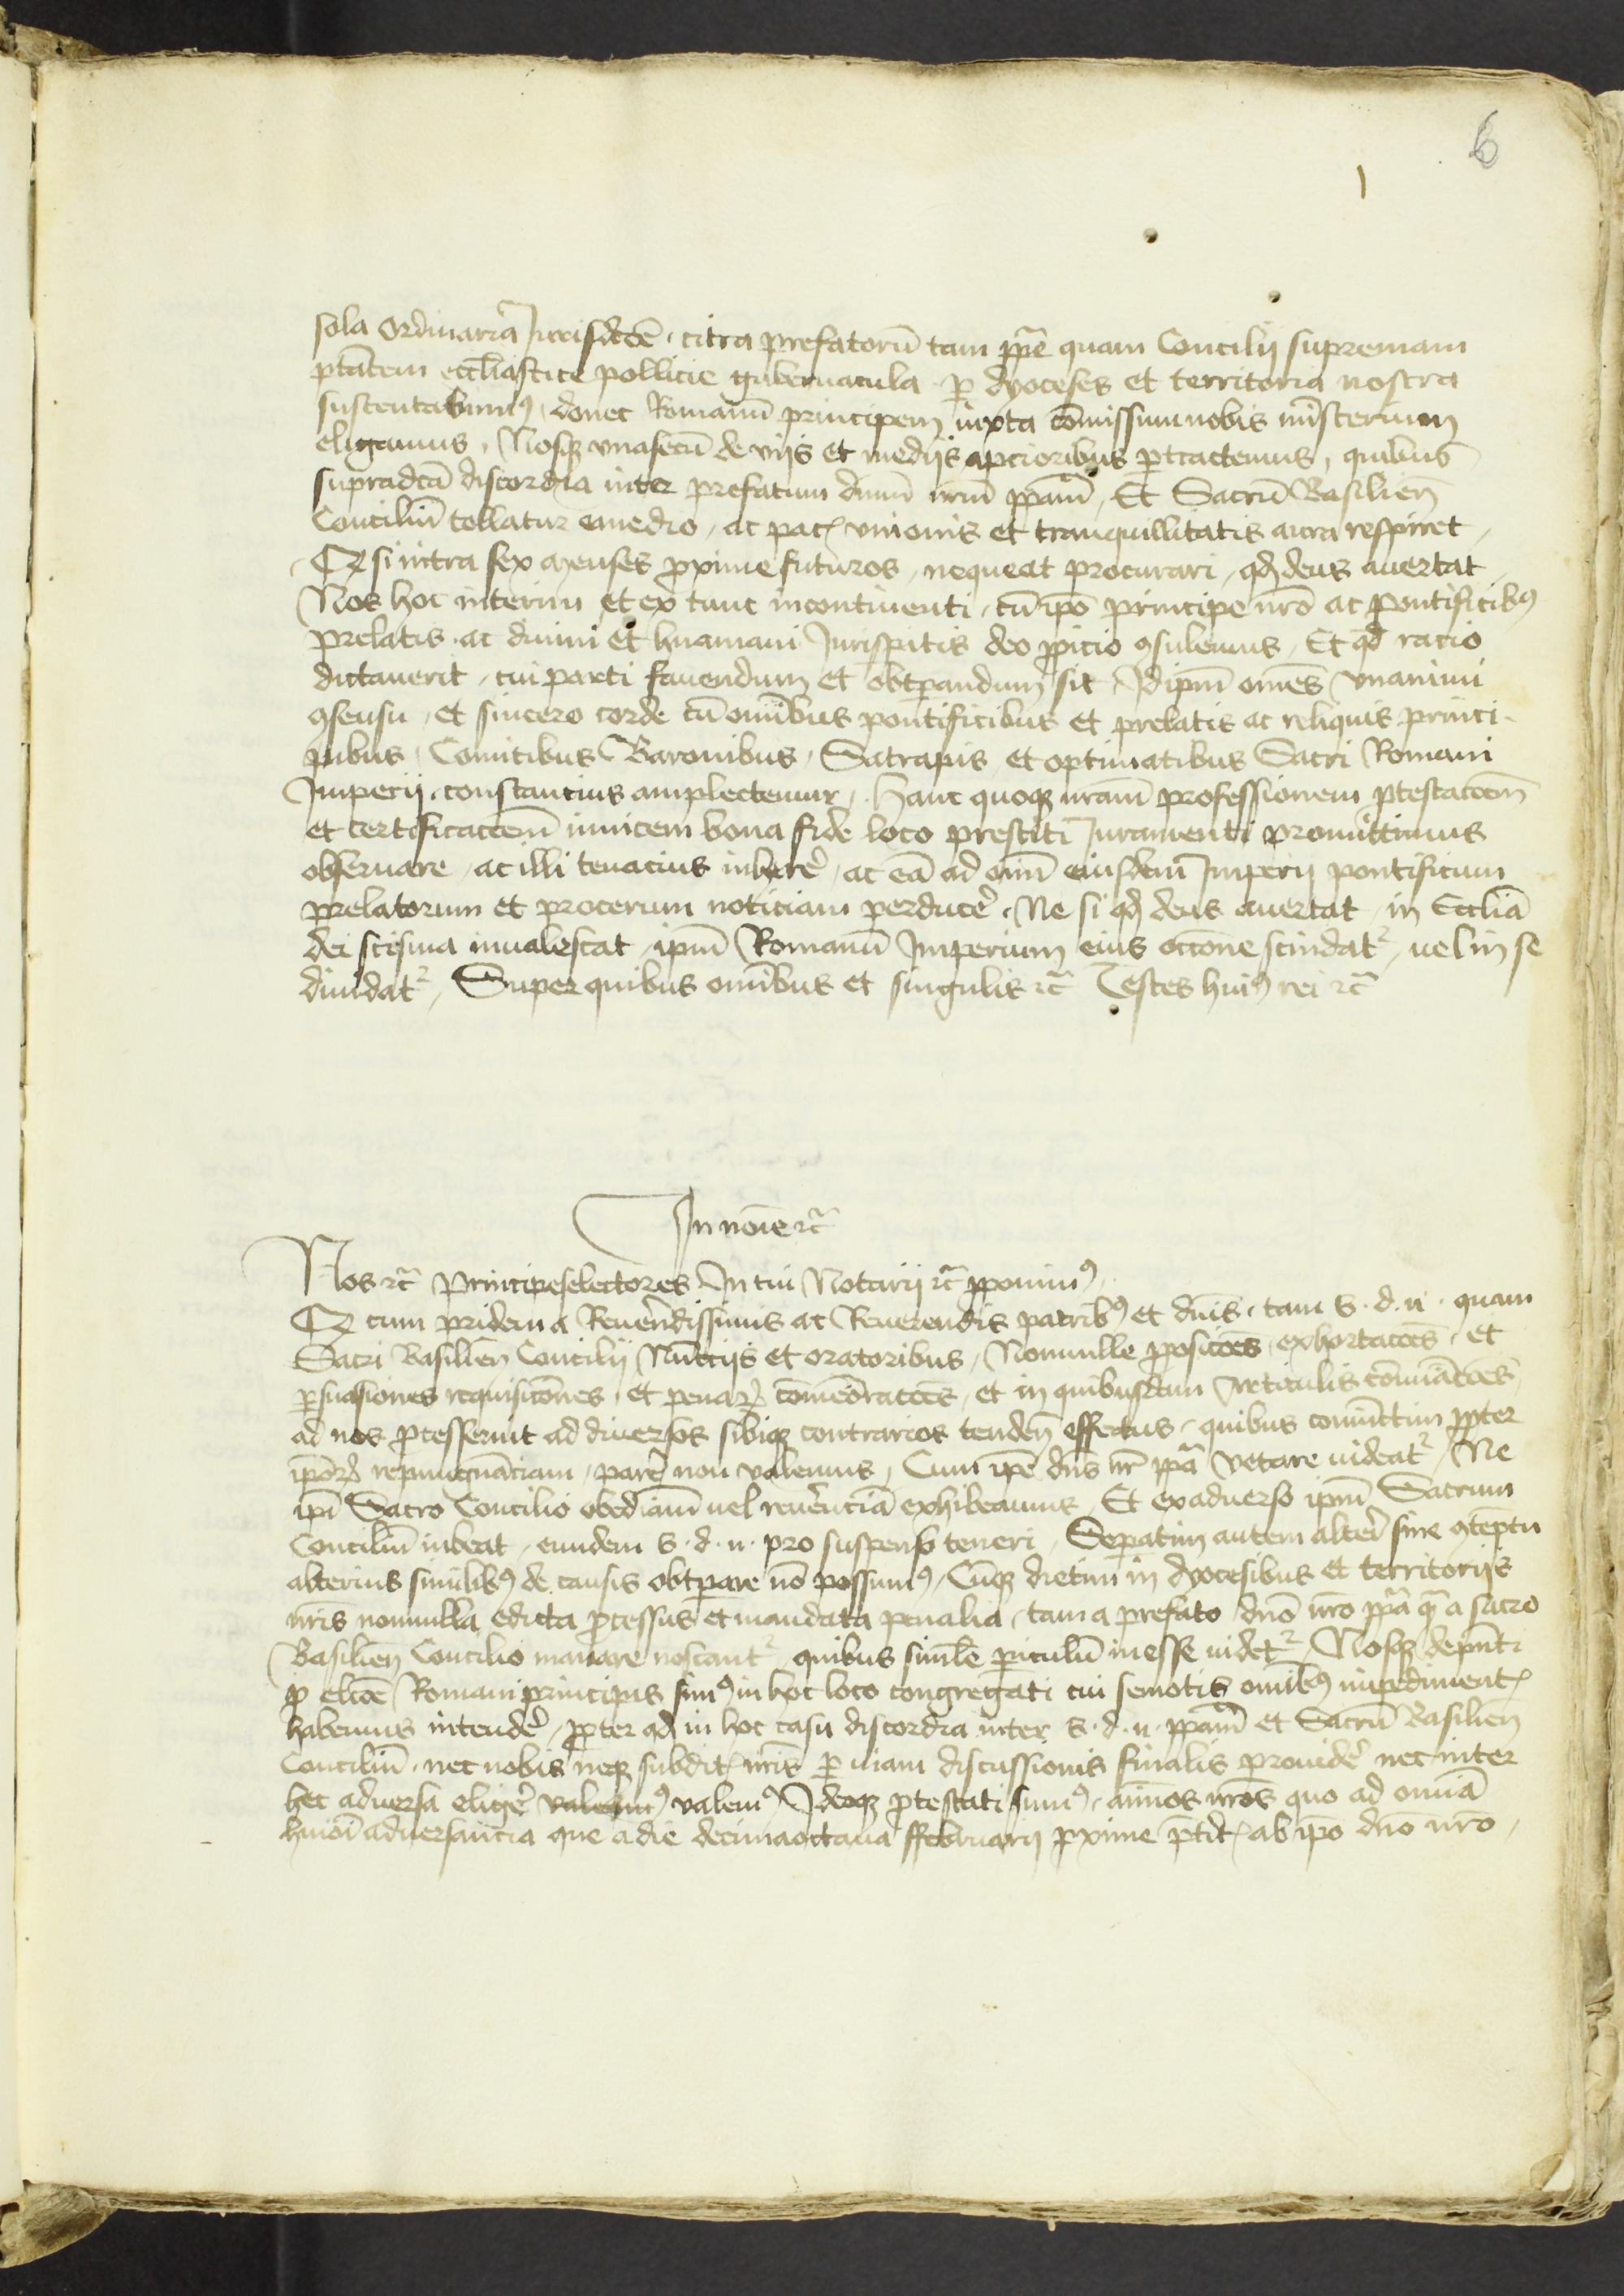 6
sola Ordinaria Jurisdictōe, citra prefatorū tam pp̄e quam Concilij supremam
ptātem eccl̄iastice pollicie gubernacula p̱ dyoceses et territoria nostra
sustentabimꝰ, donec Romanū principem iuxta cōmissum nobis mīsterium
eligamus, Nosqꝫ vnasecū de vijs et medijs apcioribus p̱tractemus, quibus
supradc̄a discordia inter prefatum dnm̄ nrm̄ pp̄am, Et Sacrū Basilien̄
Conciliū tollatur emedio, ac pacꝭ vnionis et tranquillitatis aura respiret
Qꝫ si intra sex menses ꝓxime futuros, nequeat procurari, qđ deus auertat
Nos hoc interim et ex tunc incontinenti, cū ip̄o principe nr̄o ac pontificibꝰ
prelatis, ac diuini et humani Jurisp̱itis deo ꝓpicio ꝯsulemus, Et qđ racio
dictauerit, cui parti fauendum et obtp̱andum sit, Idip̄m om̄es vnanimi
ꝯsensu, et sincero corde cū om̄ibus pontificibus et prelatis ac reliquis princi-
pibus, Comitibus Baronibus, Satrapis et optimatibus Sacri Romani
Imperij, constancius amplectemur, Hanc quoqꝫ nrām professionem ꝓtestacōem
et certificacōem inuicem bona fide loco prestiti Juramenti promittimus
obseruare, ac illi tenacius inherē, ac eā ad om̄m eiusdem Imperij pontificum
prelatorum et procerum noticiam perducē, Ne si qđ deus auertat in Eccl̄ia
dei scisma inualescat, ip̄m Romanū Imperium eius occōne scindatᷣ, uel in se
diuidatᷣ, Super quibus om̄ibus et singulis ⁊c̄ Testes huiꝰ rei ⁊c̄
In noīe ⁊c̄
Nos ⁊c̄ Principes electores In cui Notarij ⁊c̄ ꝓponimꝰ
Qꝫ cum pridem a Reuerēdissimis ac Reuerendis patribꝰ et dn̄is, tam S. d. n. quam
Sacri Basilien̄ Concilij Nūccijs et oratoribus, Nonnulle ꝓposicōes, exhortacōes, et
p̱suasiones requisicōnes, et penaꝝ cōmeōracōes, et in quibusdam Articulis cōminācōes
ad nos ꝓcesserint ad diuersos sibiqꝫ contrarios tenden̄ effectus, quibus coniunctim ꝓpter
ip̄oꝝ repungnāciam, parē non valemus, Cum ip̄e dn̄s nr̄ pp̄a vetare uideatᷣ, Ne
ip̄i Sacro Concilio obedīam uel reuerēnciā exhibeamus, Et exaduerso ip̄m Sacrum
Conciliū iubeat, eundem S. d. n. pro suspenso teneri, Sep̱atim autem alterī sine ꝯteptu
alterius similibꝰ de causis obtp̱are nō possumꝰ, Cūqꝫ dietim in dyocesibus et territorijs
nr̄is nonnulla edicta ꝓcessus et mandata penalia, tam a prefato dn̄o nr̄o pp̄a qᷓ a sacro
Basilien̄ Concilio manare noscantᷣ, quibus simile periculū inesse uidetᷣ, Nosqꝫ dep̄nti
ꝓ elcōe Romani principis simꝰ in hoc loco congregati cui semotis om̄ibꝰ impedimentꝭ
habemus intendē, ꝓpter qđ in hoc casu discordia inter S. d. n. pp̄am et Sacrū Basilien̄
Conciliū, nec nobis neqꝫ subditꝭ nr̄is p̱ uiam discussionis finalis prouidē nec inter
hec aduersa eligē valemꝰ valemꝰ Ideoqꝫ ꝓtestati sumꝰ, animos nr̄os quo ad om̄ia
huiōi aduersancia que a die decimaoctaua ffebruarij ꝓxime p̄titꝭ ab ip̄o dn̄o nr̄o,